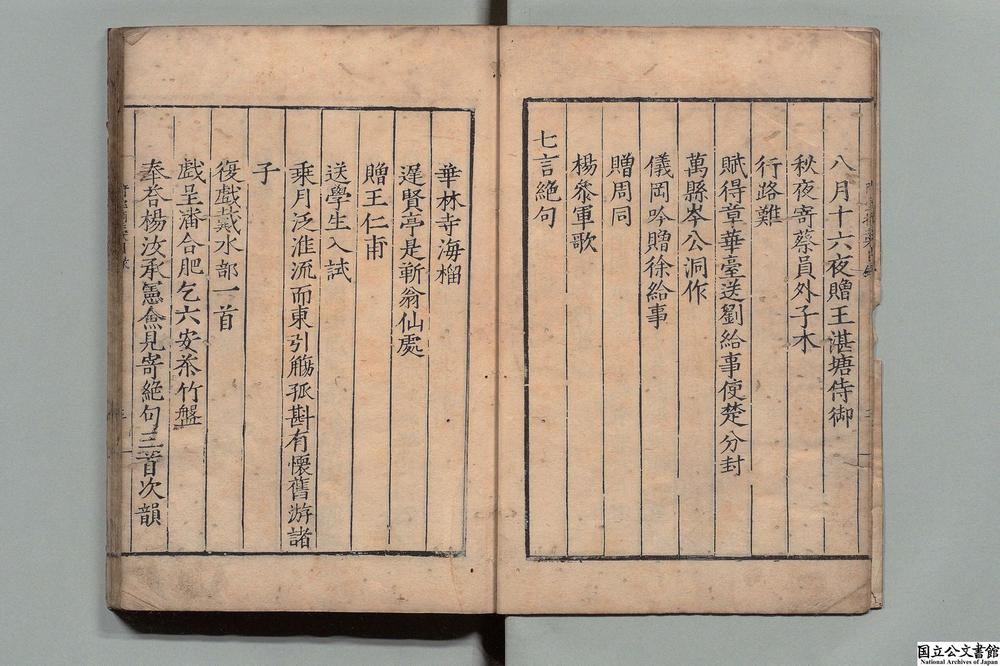 八月十六夜贈王湛塘侍御
秋夜寄蔡員外子木
行路難
賦得章華臺送劉給事使楚分封
萬縣岑公洞作
儀岡吟贈徐給事
贈周同
楊叅軍歌
七言絶句
華林寺海榴
遅賢亭是蘄翁仙處
贈王仁甫
送學生入試
乗月泛淮流而東引觴孤斟有懷舊游諸
子
復戯戴水部一首
戯呈潘合肥乞六安茶竹盤
奉荅楊汝承憲僉見寄絶句三首次韻
国立公文書館
National Archives of Japan